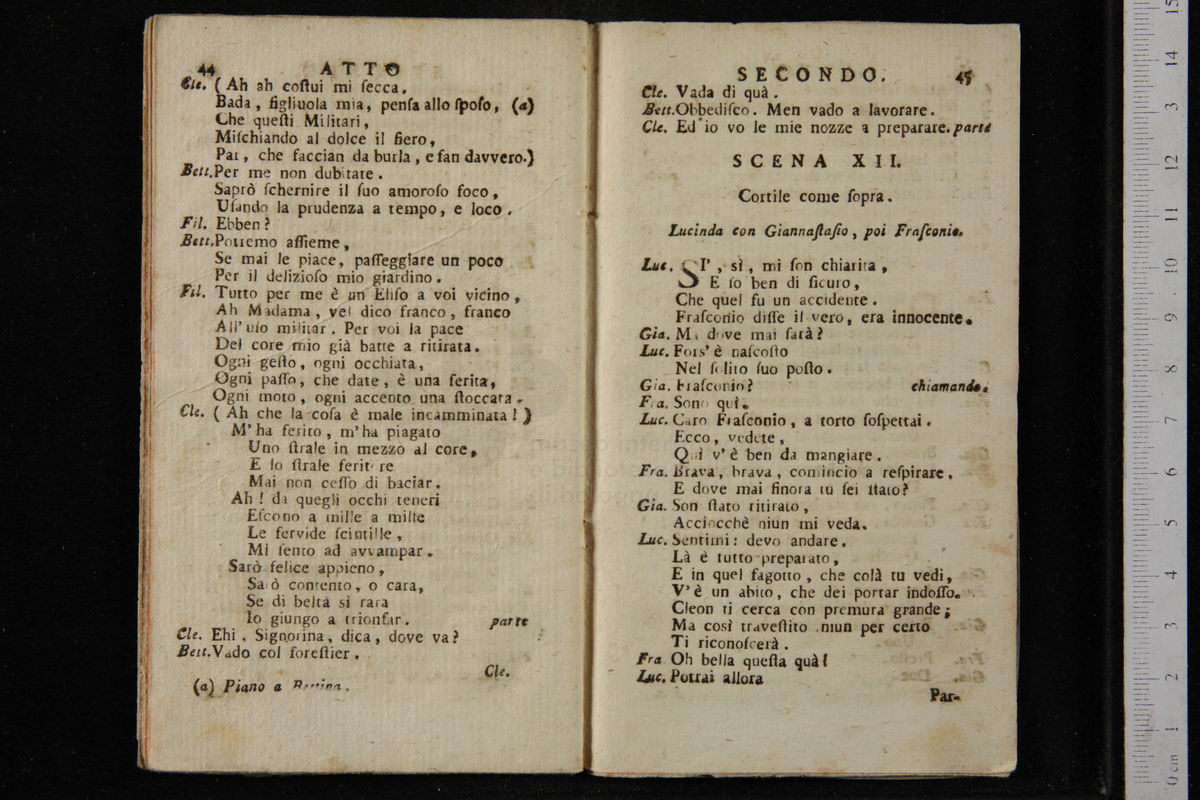 44 ATTO
Cle. ( Ah ah coſtui mi ſecca.
Bada, figliuola mia, penſa allo ſpoſo, (a)
Che queſti Militari,
Miſchiando al dolce il fiero,
Par, che faccian da burla, e fan davvero.)
Bett. Per me non dubitate.
Saprò ſchernire il ſuo amoroſo foco,
Uſando la prudenza a tempo, e loco.
Fil. Ebben?
Bett. Potremo aſſieme,
Se mai le piace, paſſeggiare un poco
Per il delizioſo mio giardino.
Fil. Tutto per me è un Eliſo a voi vicino,
Ah Madama, vel dico franco, franco
All' uſo militar. Per voi la pace
Del core mio già batte a ritirata.
Ogni geſto, ogni occhiata,
Ogni paſſo, che date, è una ferita,
Ogni moto, ogni accento una ſtoccata.
Cle. ( Ah che la coſa è male incamminata! )
M' ha ferito, m' ha piagato
Uno ſtrale in mezzo al core,
E lo ſtrale feritore
Mai non ceſſo di baciar.
Ah! da quegli occhi teneri
Eſcono a mille a mille
Le fervide ſcintille,
Mi ſento ad avvampar.
Sarò felice appieno,
Sarò contento, o cara,
Se di beltà sì rara
Io giungo a trionfar. parte
Cle. Ehi, Signorina, dica, dove va?
Bett. Vado col foreſtier.
Cle.
(a) Piano a Bettina.
SECONDO. 45
Cle. Vada di quà.
Bett. Obbediſco. Men vado a lavorare.
Cle. Ed io vo le mie nozze a preparare. parte
SCENA XII.
Cortile come ſopra.
Lucinda con Giannaſtaſio, poi Fraſconio.
Luc. SI', sì, mi ſon chiarita,
E ſo ben di ſicuro,
Che quel fu un accidente.
Fraſconio diſſe il vero, era innocente.
Gia. Ma dove mai ſarà?
Luc. Fors' è naſcoſto
Nel ſolito ſuo poſto.
Gia. Fraſconio? chiamando.
Fra. Sono quì.
Luc. Caro Fraſconio, a torto ſoſpettai.
Ecco, vedete,
Quì v' è ben da mangiare.
Fra. Brava, brava, comincio a reſpirare.
E dove mai finora tu ſei ſtato?
Gia. Son ſtato ritirato,
Acciocchè niun mi veda.
Luc. Sentimi: devo andare.
Là è tutto preparato,
E in quel fagotto, che colà tu vedi,
V' è un abito, che dei portar indoſſo.
Cleon ti cerca con premura grande;
Ma così traveſtito niun per certo
Ti riconoſcerà.
Fra Oh bella queſta quà!
Luc. Potrai allora
Par-